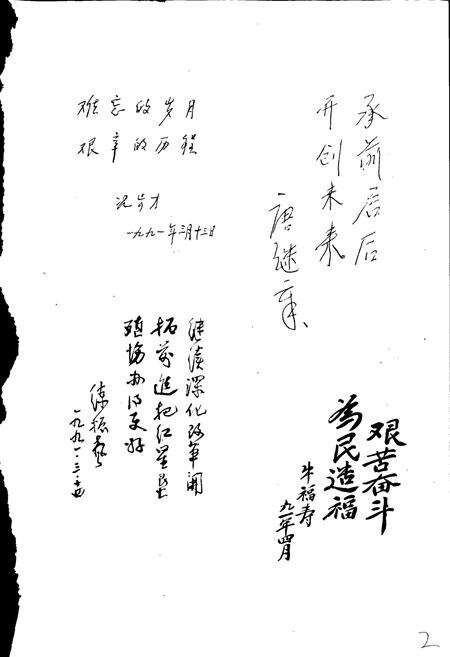 难忘的岁月
艰辛的历程
一九九一年三月十三日
承前启后
开创未来
唐继章
继续深化改革开
拓前进把红星农
殖场办得更好
一九九一·三·
艰苦奋斗
为民造福
牛福寿
九一年四月
2